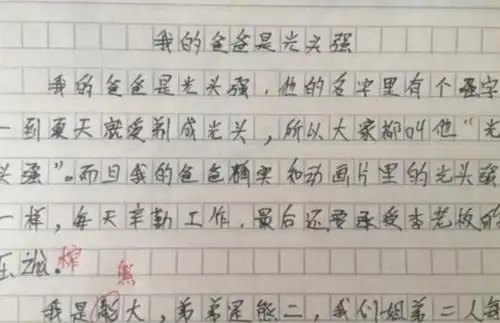 我的爸爸是光头强
我的爸爸是光头强,他的名字里有个强字
一到夏天就爱剃成光头,所以大家都叫他“光
头强”。而且我的爸爸确实和动画片里的光头强
一样,每天辛勤工作,最后还要承受李老板的
压 榨
熊
我是 大,弟弟是熊二,我们姐弟二人每